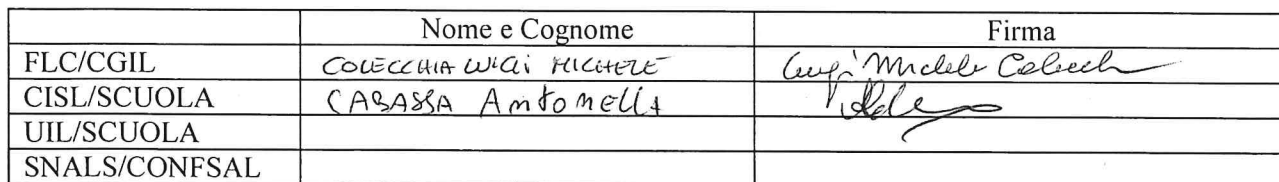 Nome e Cognome Firma
FLC/CGIL COLECCHIA LUIGI MICHELE Luigi Michele Colecch
CISL/SCUOLA CABASSA Antonella
UIL/SCUOLA
SNALS/CONFSAL